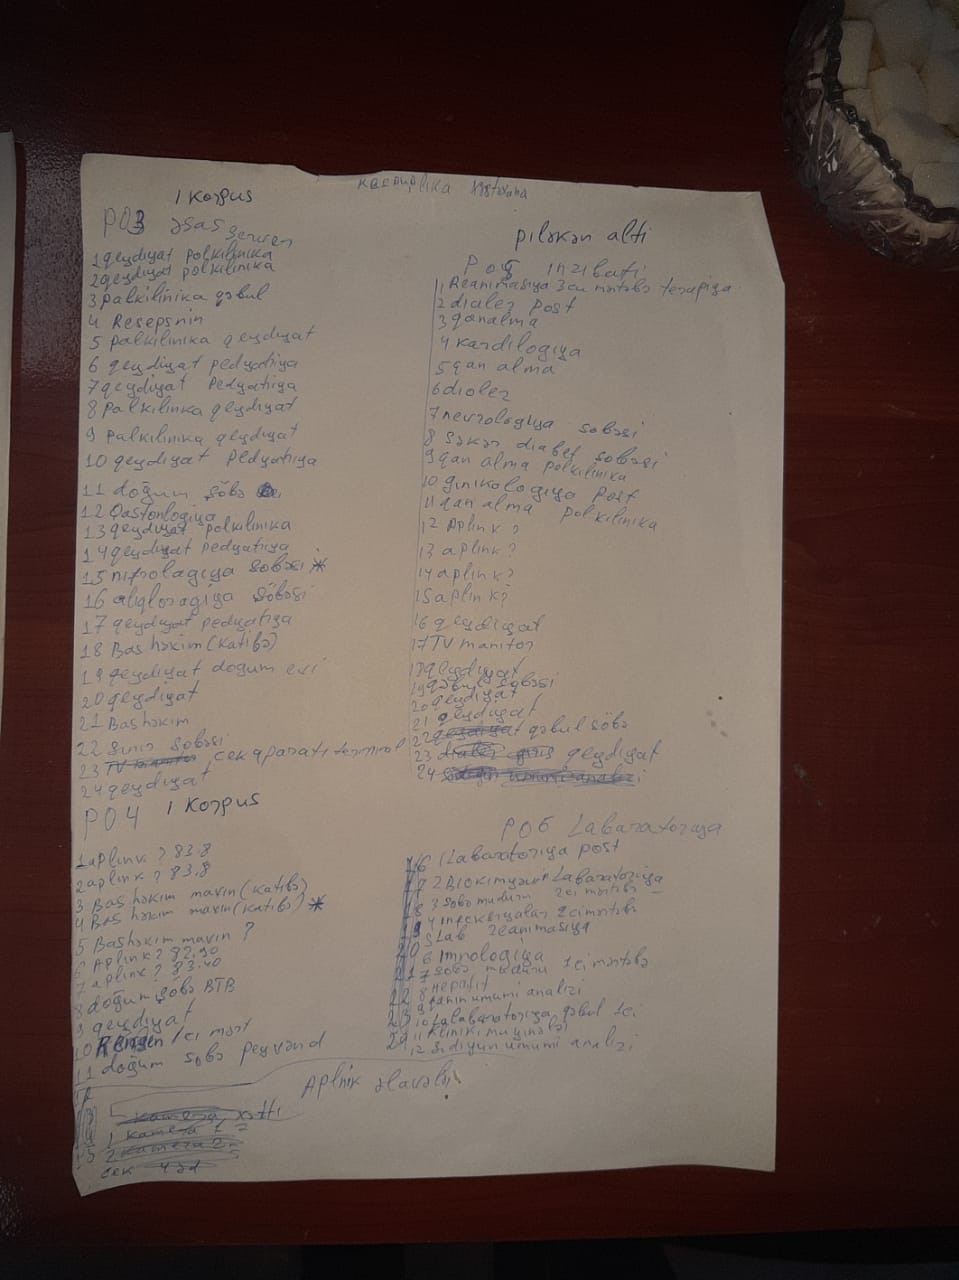 1 Korpus
PO3 əsas server
1 qeydiyat polkilinika
2 qeydiyat polkilinika
3 palkilinika qəbul
4 Resepsnin
5 palkilinika qeydiyat
6 qeydiyat pedyatiya
7 qeydiyat Pedyatiya
8 palkilinka qeydiyat
9 palkilinika qeydiyat
10 qeydiyat Pedyatiya
11 doğum şöbə
12 Qastonlogiya
13 qeydiyat polkilinika
14 qeydiyat pedyatiya
15 nifrolagiya şobəsi *
16 şöbəsi
17 qeydiyat pedyatiya
18 Baş həkim (katibə)
19 qeydiyat dogum evi
20 qeydiyat
21 Baş həkim
22 şobəsi
23 terminal
24 qeydiyat
PO4 1 Korpus
1 aplink ? 83.8
2 aplink ? 83,8
3 Baş həkim mavin (katibə)
4 Baş həkim mavin (katibə) *
5 Bashəkim mavin ?
6 Aplink ? 82.90
7 aplink ? 83.40
8 doğum şobə BTB
9 qeydiyat
10 1ci mərt
11 doğum şobə peyvənd
piləkən alti
PO5 inzibati
1 Reanimasiya 3cu mərtəbə terapiya
2 dializ post
3 qanalma
4 kardilogiya
5 qan alma
6 dializ
7 nevrologiya şobəsi
8 Şəkər diabet şobəsi
9 qan alma polkilinika
10 ginikologiya post
11 qan alma polkilinika
12 Aplink ?
13 aplink ?
14 aplink ?
15 aplink ?
16 qeydiyat
17 TV manitor
18 qeydiyyat
19 qəbul şobəsi
20 qeydiyat
21 qeydiyat
22 qəbul şöbə
23 qeydiyat
24
PO6 Labaratoriya
1 Labaratoriya post
2 Labaratoriya
3 şobə muduru 2ci mərtəbə
4 2ci mərtəbə
5 Lab reanimasiya
6 imnologiya
7 şobə muduru 1ci mərtəbə
8 Hepatit
9 qanın umumi analizi
10 Lalabaratoriya qəbul 1ci
11 kliniki muyinələr
12 Sidiyun umumi analizi
Aplink əlavələr